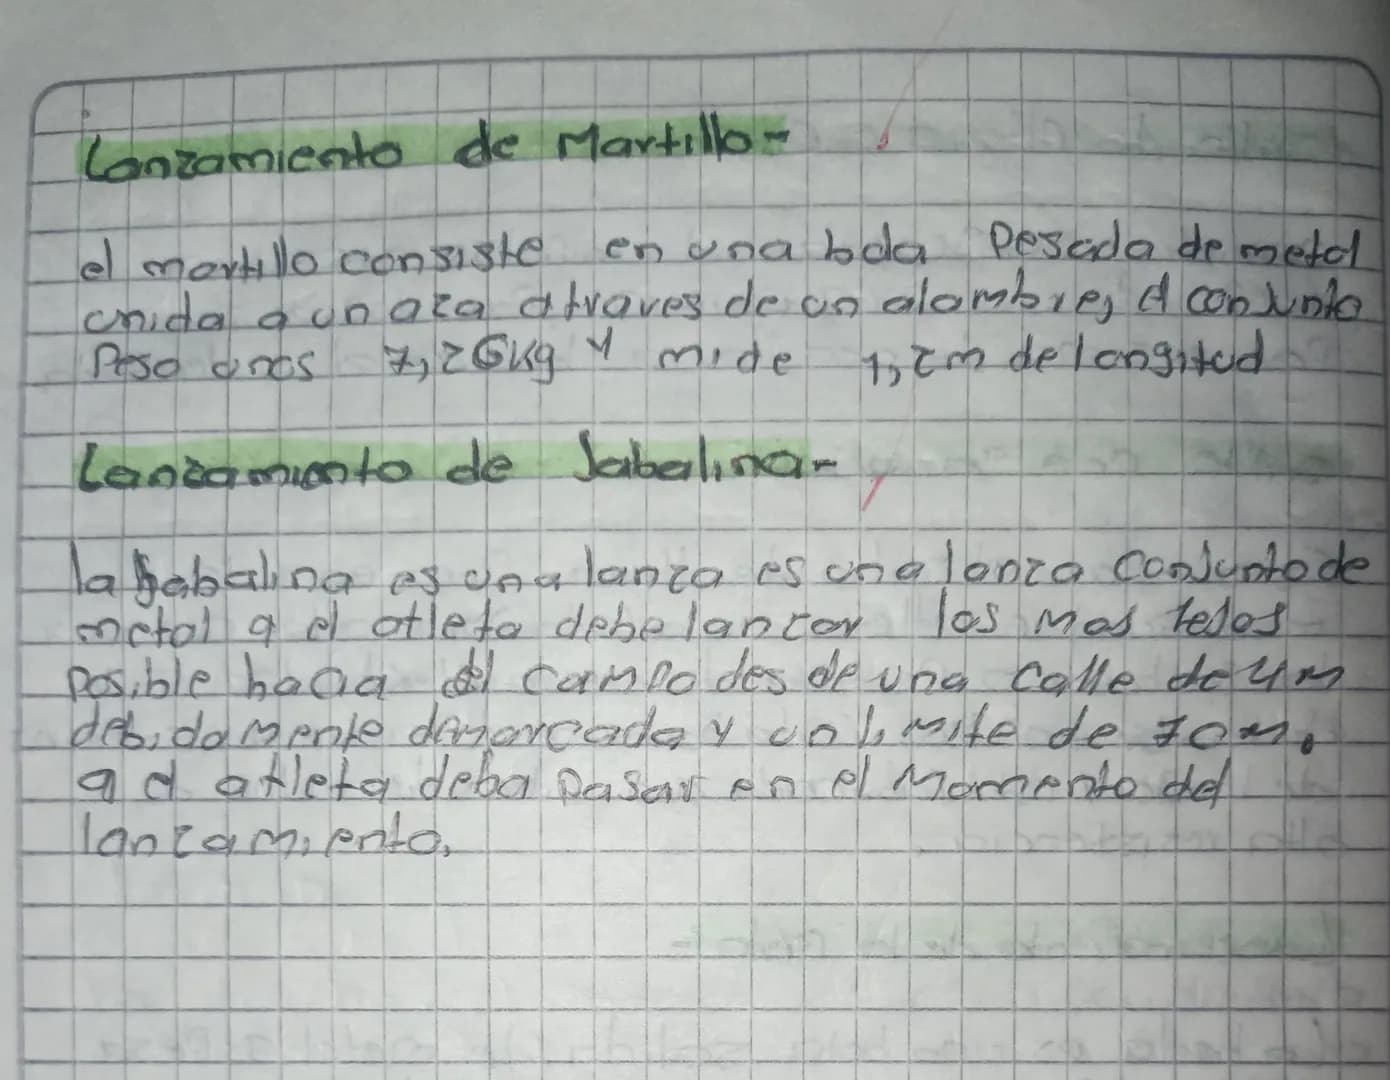 Lanzamiento de Martillo-
el martillo consiste en una bola Pesada de metal
unida a un aza atraves de un alambre, el conjunto
Peso unos 7,26kg y mide 1,2m de longitud
Lanzamiento de Jabalina-
la jabalina es una lanza es una lanza conjunto de
metal q el atleta debe lanzar los mas lejos
Posible hacia el campo desde una calle de 4m
debidamente demarcada y un limite de 70m.
q el atleta deba pasar en el Momento del
lanzamiento.